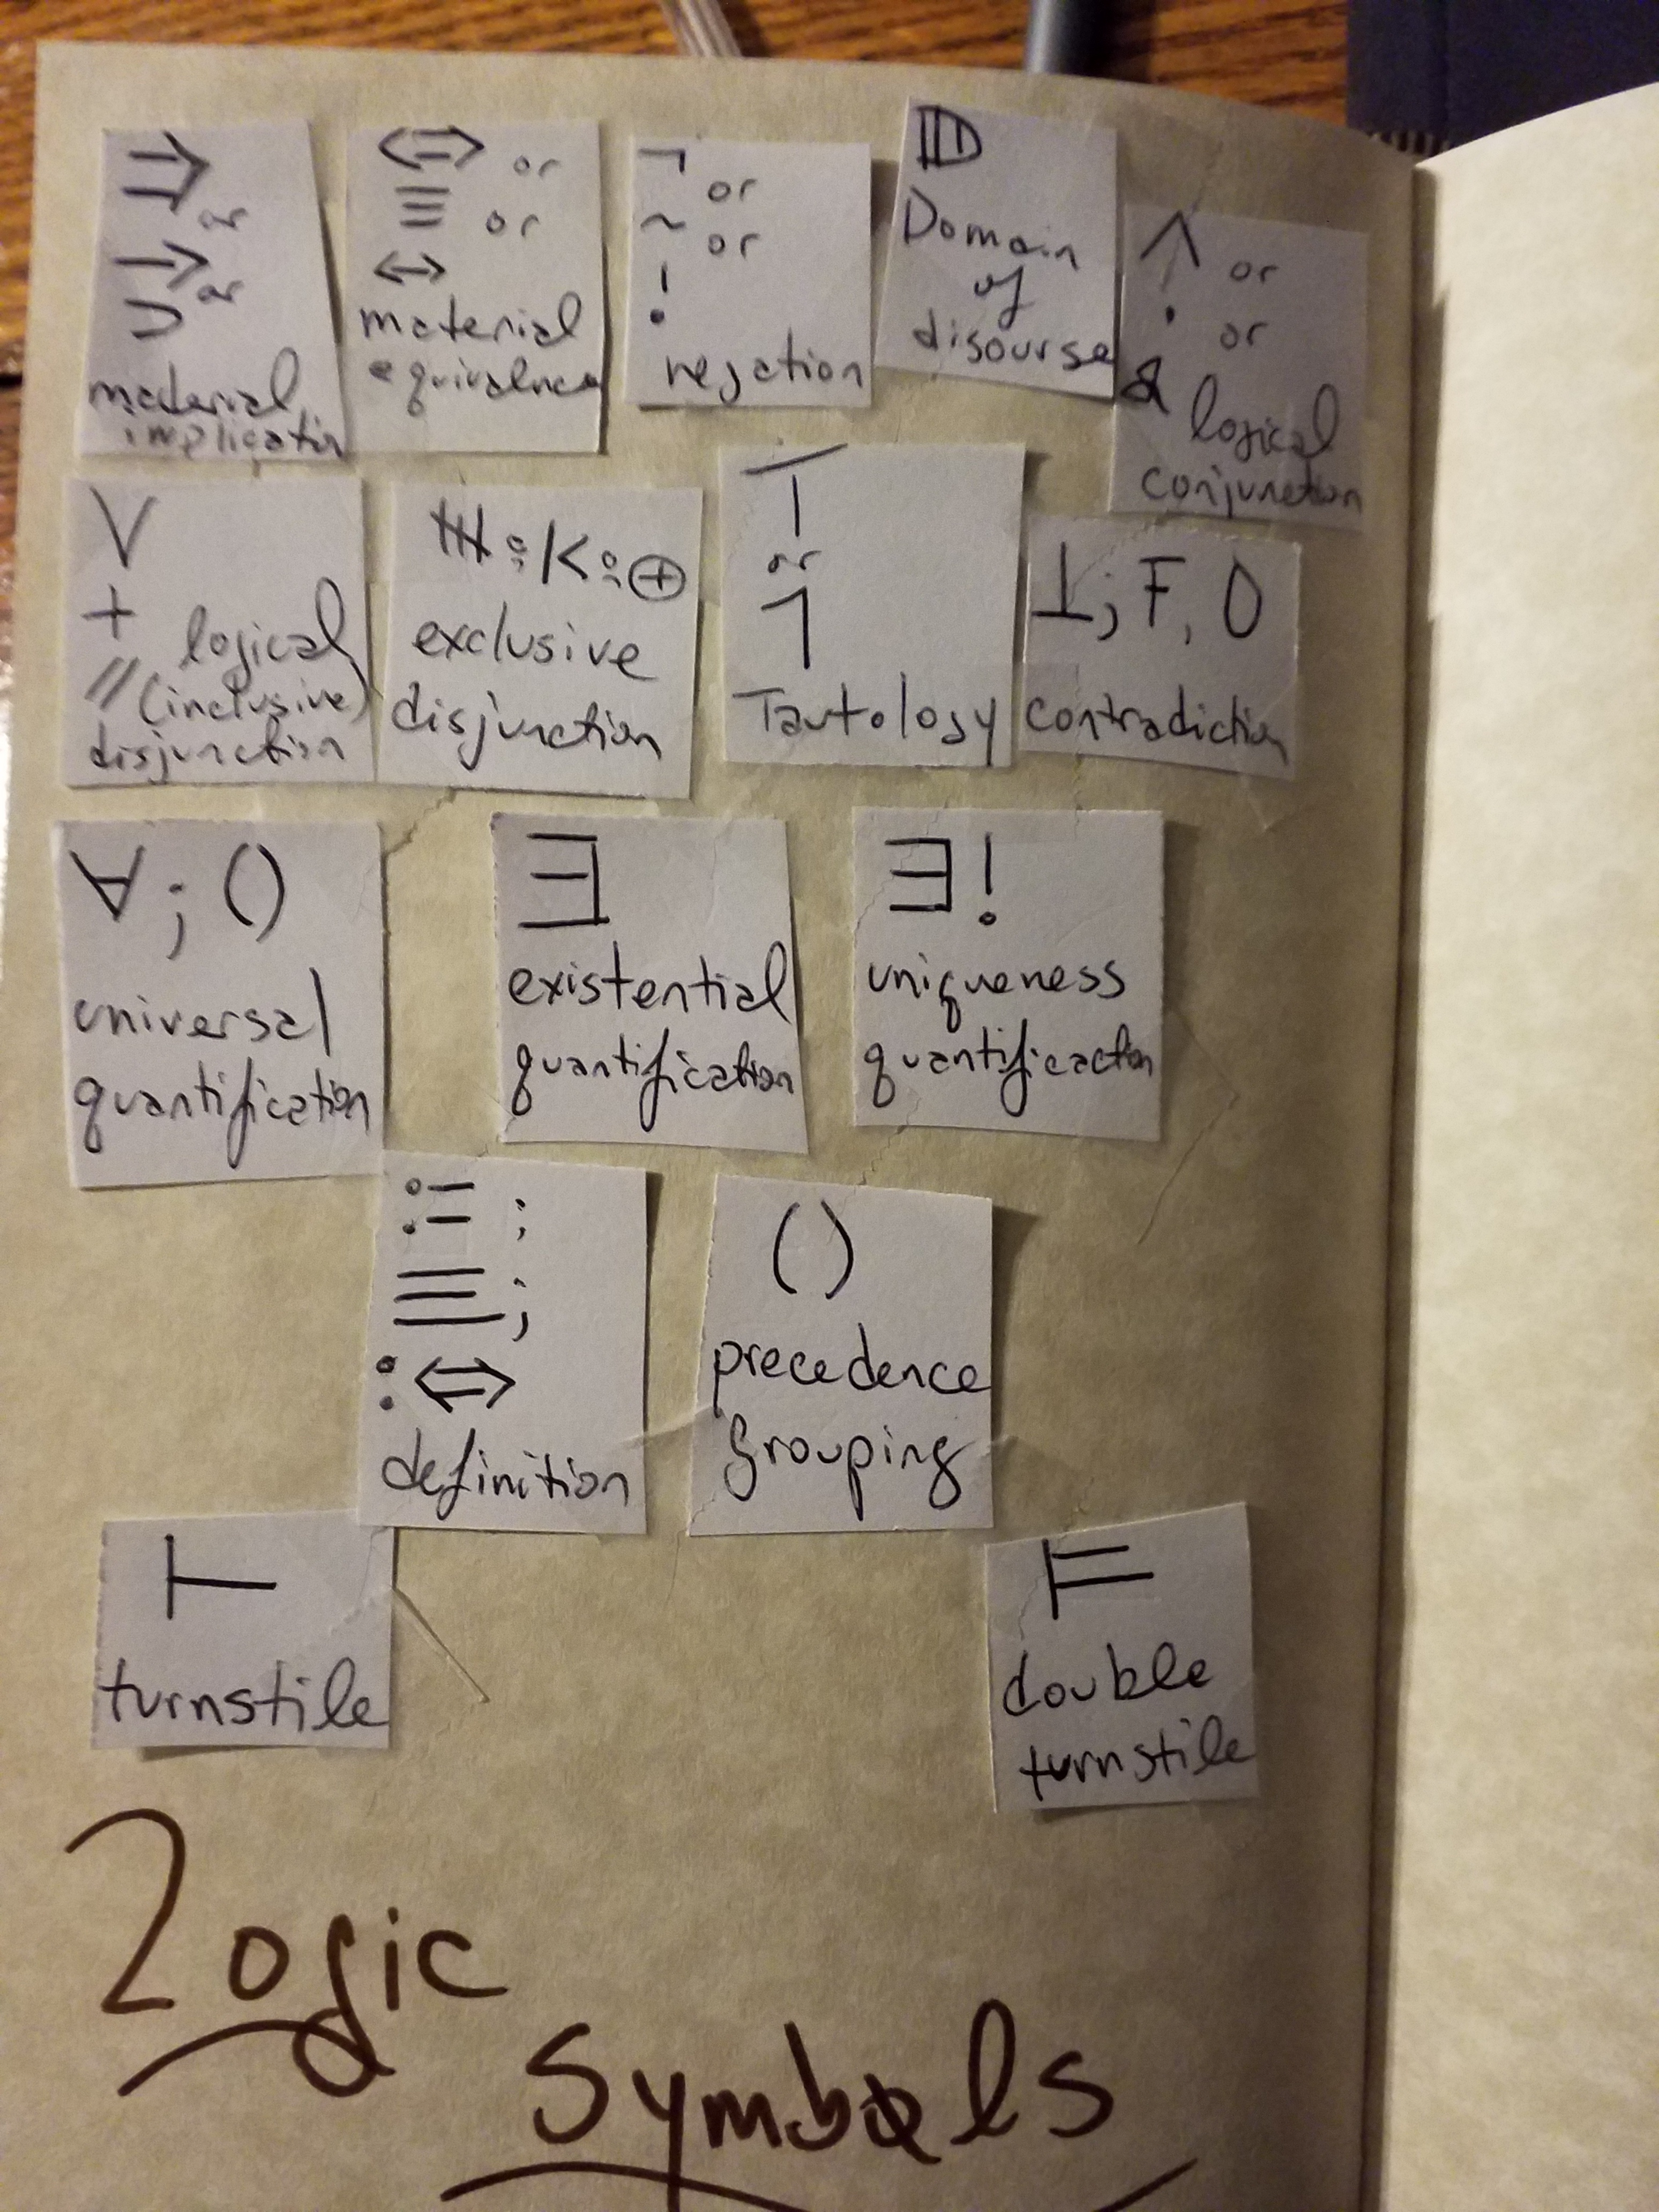 ⇒ or
→ or
⊃
material
implication
⇔ or
≡ or
↔
material
equivalence
¬ or
~ or
!
negation
𝔻
Domain
of
disourse
∧ or
· or
& logical
conjunction
∨
+ logical
// (inclusive)
disjunction
exclusive
disjunction
T
or
1
Tautology
⊥; F, 0
contradiction
∀; ()
universal
quantification
∃
existential
quantification
∃!
uniqueness
quantificaction
:= ;
≡ ;
:⇔
definition
()
precedence
grouping
⊢
turnstile
⊨
double
turnstile
Logic
Symbols